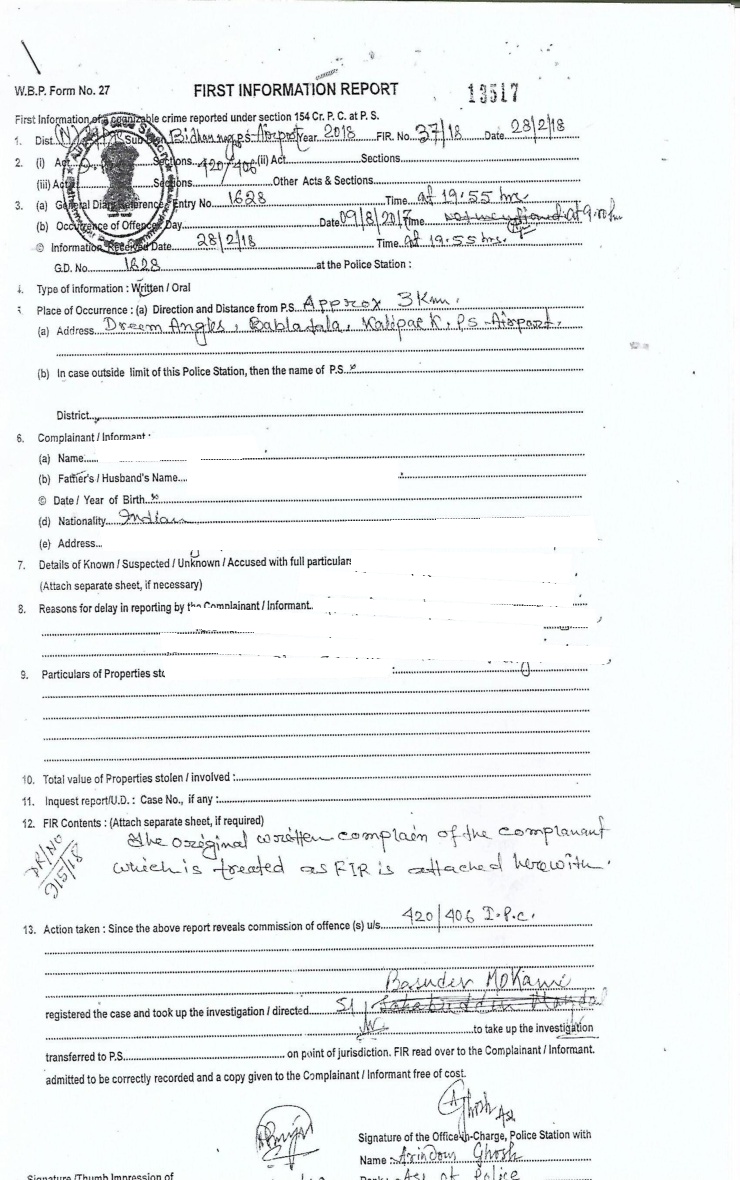 W.B.P. Form No. 27 FIRST INFORMATION REPORT 13517
First Information of a cognizable crime reported under section 154 Cr. P. C. at P. S.
1. Dist. (N) 24 Sub Bidhannagar P.S- Airport Year 2018 FIR. No. 37/18 Date 28/2/18
2. (i) Act Sections 420/406 (ii) Act Sections
(iii) Act Sections Other Acts & Sections
3. (a) General Diary Reference Entry No. 1628 Time at 19:55 hrs.
(b) Occurrence of Offence Day Date 09/8/2017 Time at 9.00 hrs
© Information Received Date 28/2/18 Time at 19:55 hrs.
G.D. No. 1628 at the Police Station :
4. Type of information : Written / Oral
5. Place of Occurrence : (a) Direction and Distance from P.S. Approx 3 Km.
(a) Address Dreem Angles, Bablatala, Kalipark, PS-Airport.
(b) In case outside limit of this Police Station, then the name of P.S. x
District
6. Complainant / Informant :
(a) Name
(b) Father's / Husband's Name
© Date / Year of Birth x
(d) Nationality Indian
(e) Address
7. Details of Known / Suspected / Unknown / Accused with full particulars
(Attach separate sheet, if necessary)
8. Reasons for delay in reporting by the Complainant / Informant.
9. Particulars of Properties
10. Total value of Properties stolen / involved :
11. Inquest report/U.D. : Case No., if any :
12. FIR Contents : (Attach separate sheet, if required)
The original written complain of the complanant
which is treated as FIR is attached herewith.
DR/NO
9/5/18
13. Action taken : Since the above report reveals commission of offence (s) u/s. 420/406 I.P.C.
Basudev Mokami
registered the case and took up the investigation / directed SI
to take up the investigation
transferred to P.S. on point of jurisdiction. FIR read over to the Complainant / Informant.
admitted to be correctly recorded and a copy given to the Complainant / Informant free of cost.
AGhosh ASI
Signature of the Office-in-Charge, Police Station with
Name : Arindom Ghosh
Signature /Thumb Impression of
ASI of Police